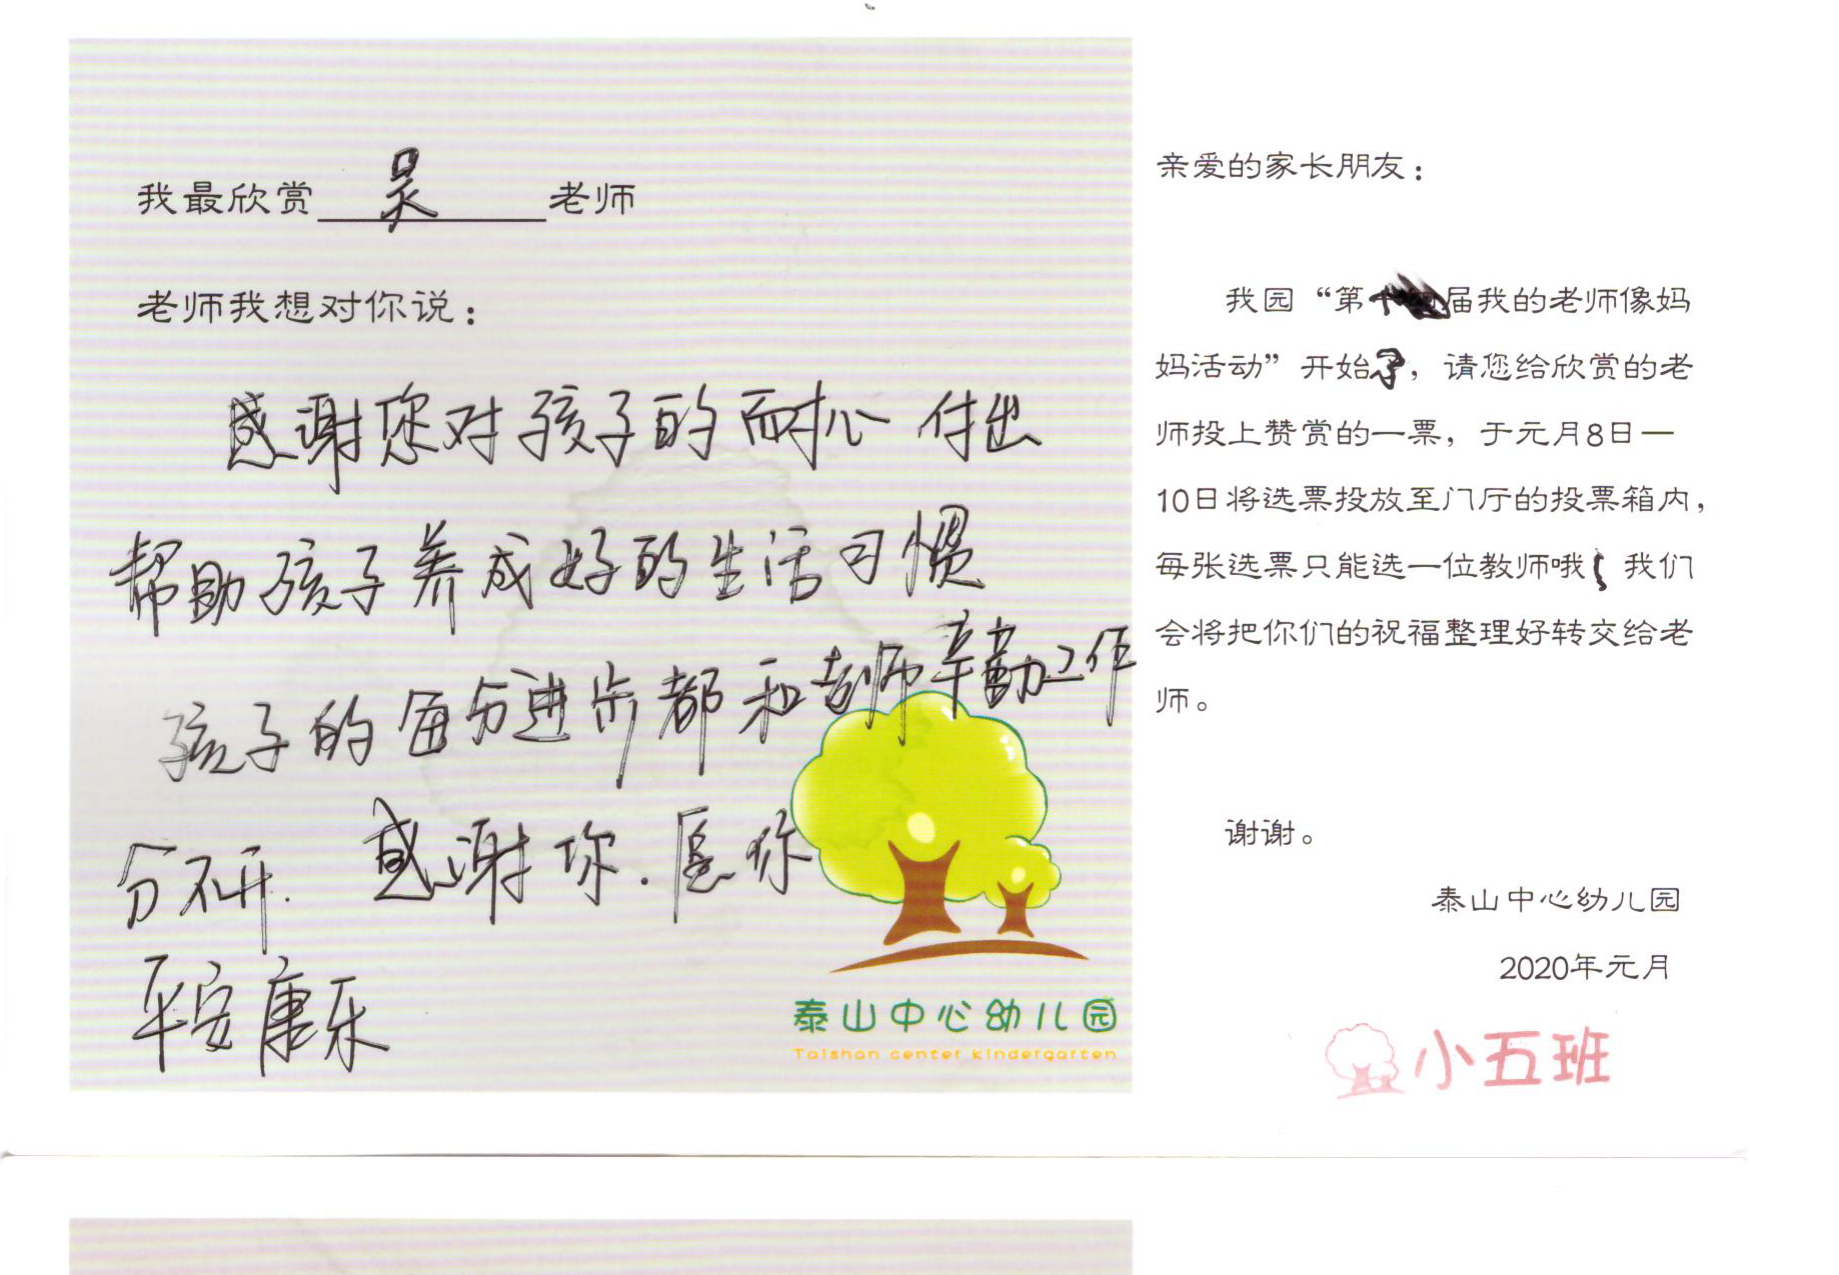 我最欣赏 吴 老师
老师我想对你说：
感谢您对孩子的耐心付出
帮助孩子养成好的生活习惯
孩子的每分进步都和老师辛勤工作
分不开. 感谢你. 愿你
平安康乐
泰山中心幼儿园
Taishan center kindergarten
亲爱的家长朋友：
我园“第届我的老师像妈
妈活动”开始了，请您给欣赏的老
师投上赞赏的一票，于元月8日—
10日将选票投放至门厅的投票箱内，
每张选票只能选一位教师哦 我们
会将把你们的祝福整理好转交给老
师。
谢谢。
泰山中心幼儿园
2020年元月
小五班